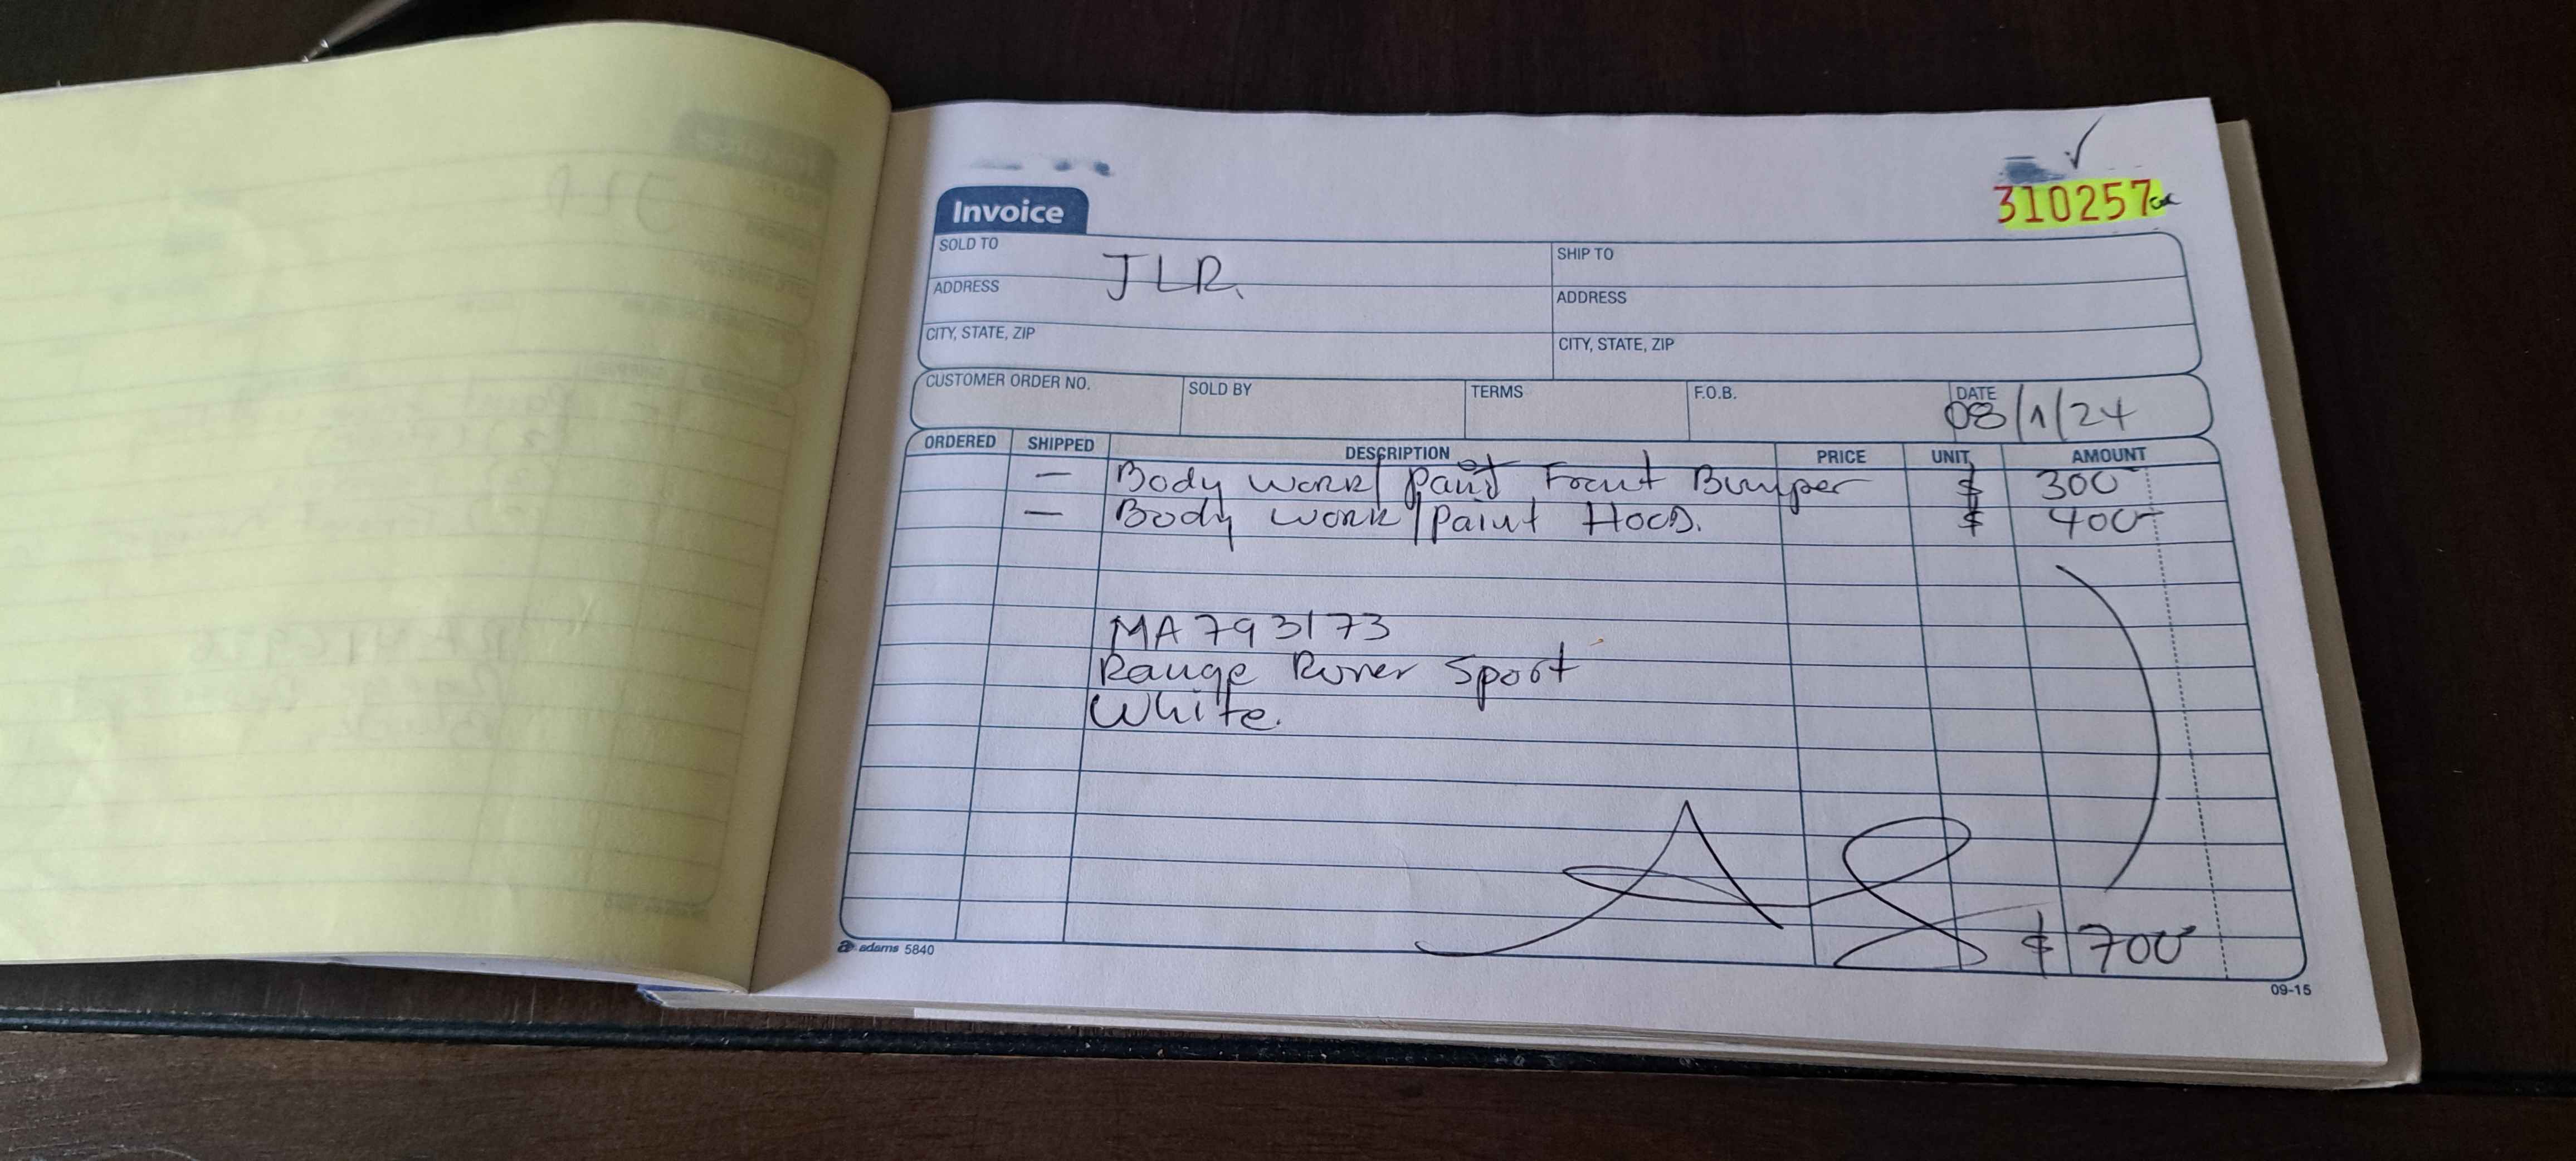 310257
Invoice
SOLD TO
JLR.
SHIP TO
ADDRESS
ADDRESS
CITY, STATE, ZIP
CITY, STATE, ZIP
CUSTOMER ORDER NO. SOLD BY TERMS F.O.B. DATE
08/1/24
ORDERED SHIPPED DESCRIPTION PRICE UNIT AMOUNT
— Body work/Paint Front Bumper $ 300
— Body work/Paint Hood. $ 400
MA793173
Range Rover Sport
White.
$ 700
adams 5840
09-15